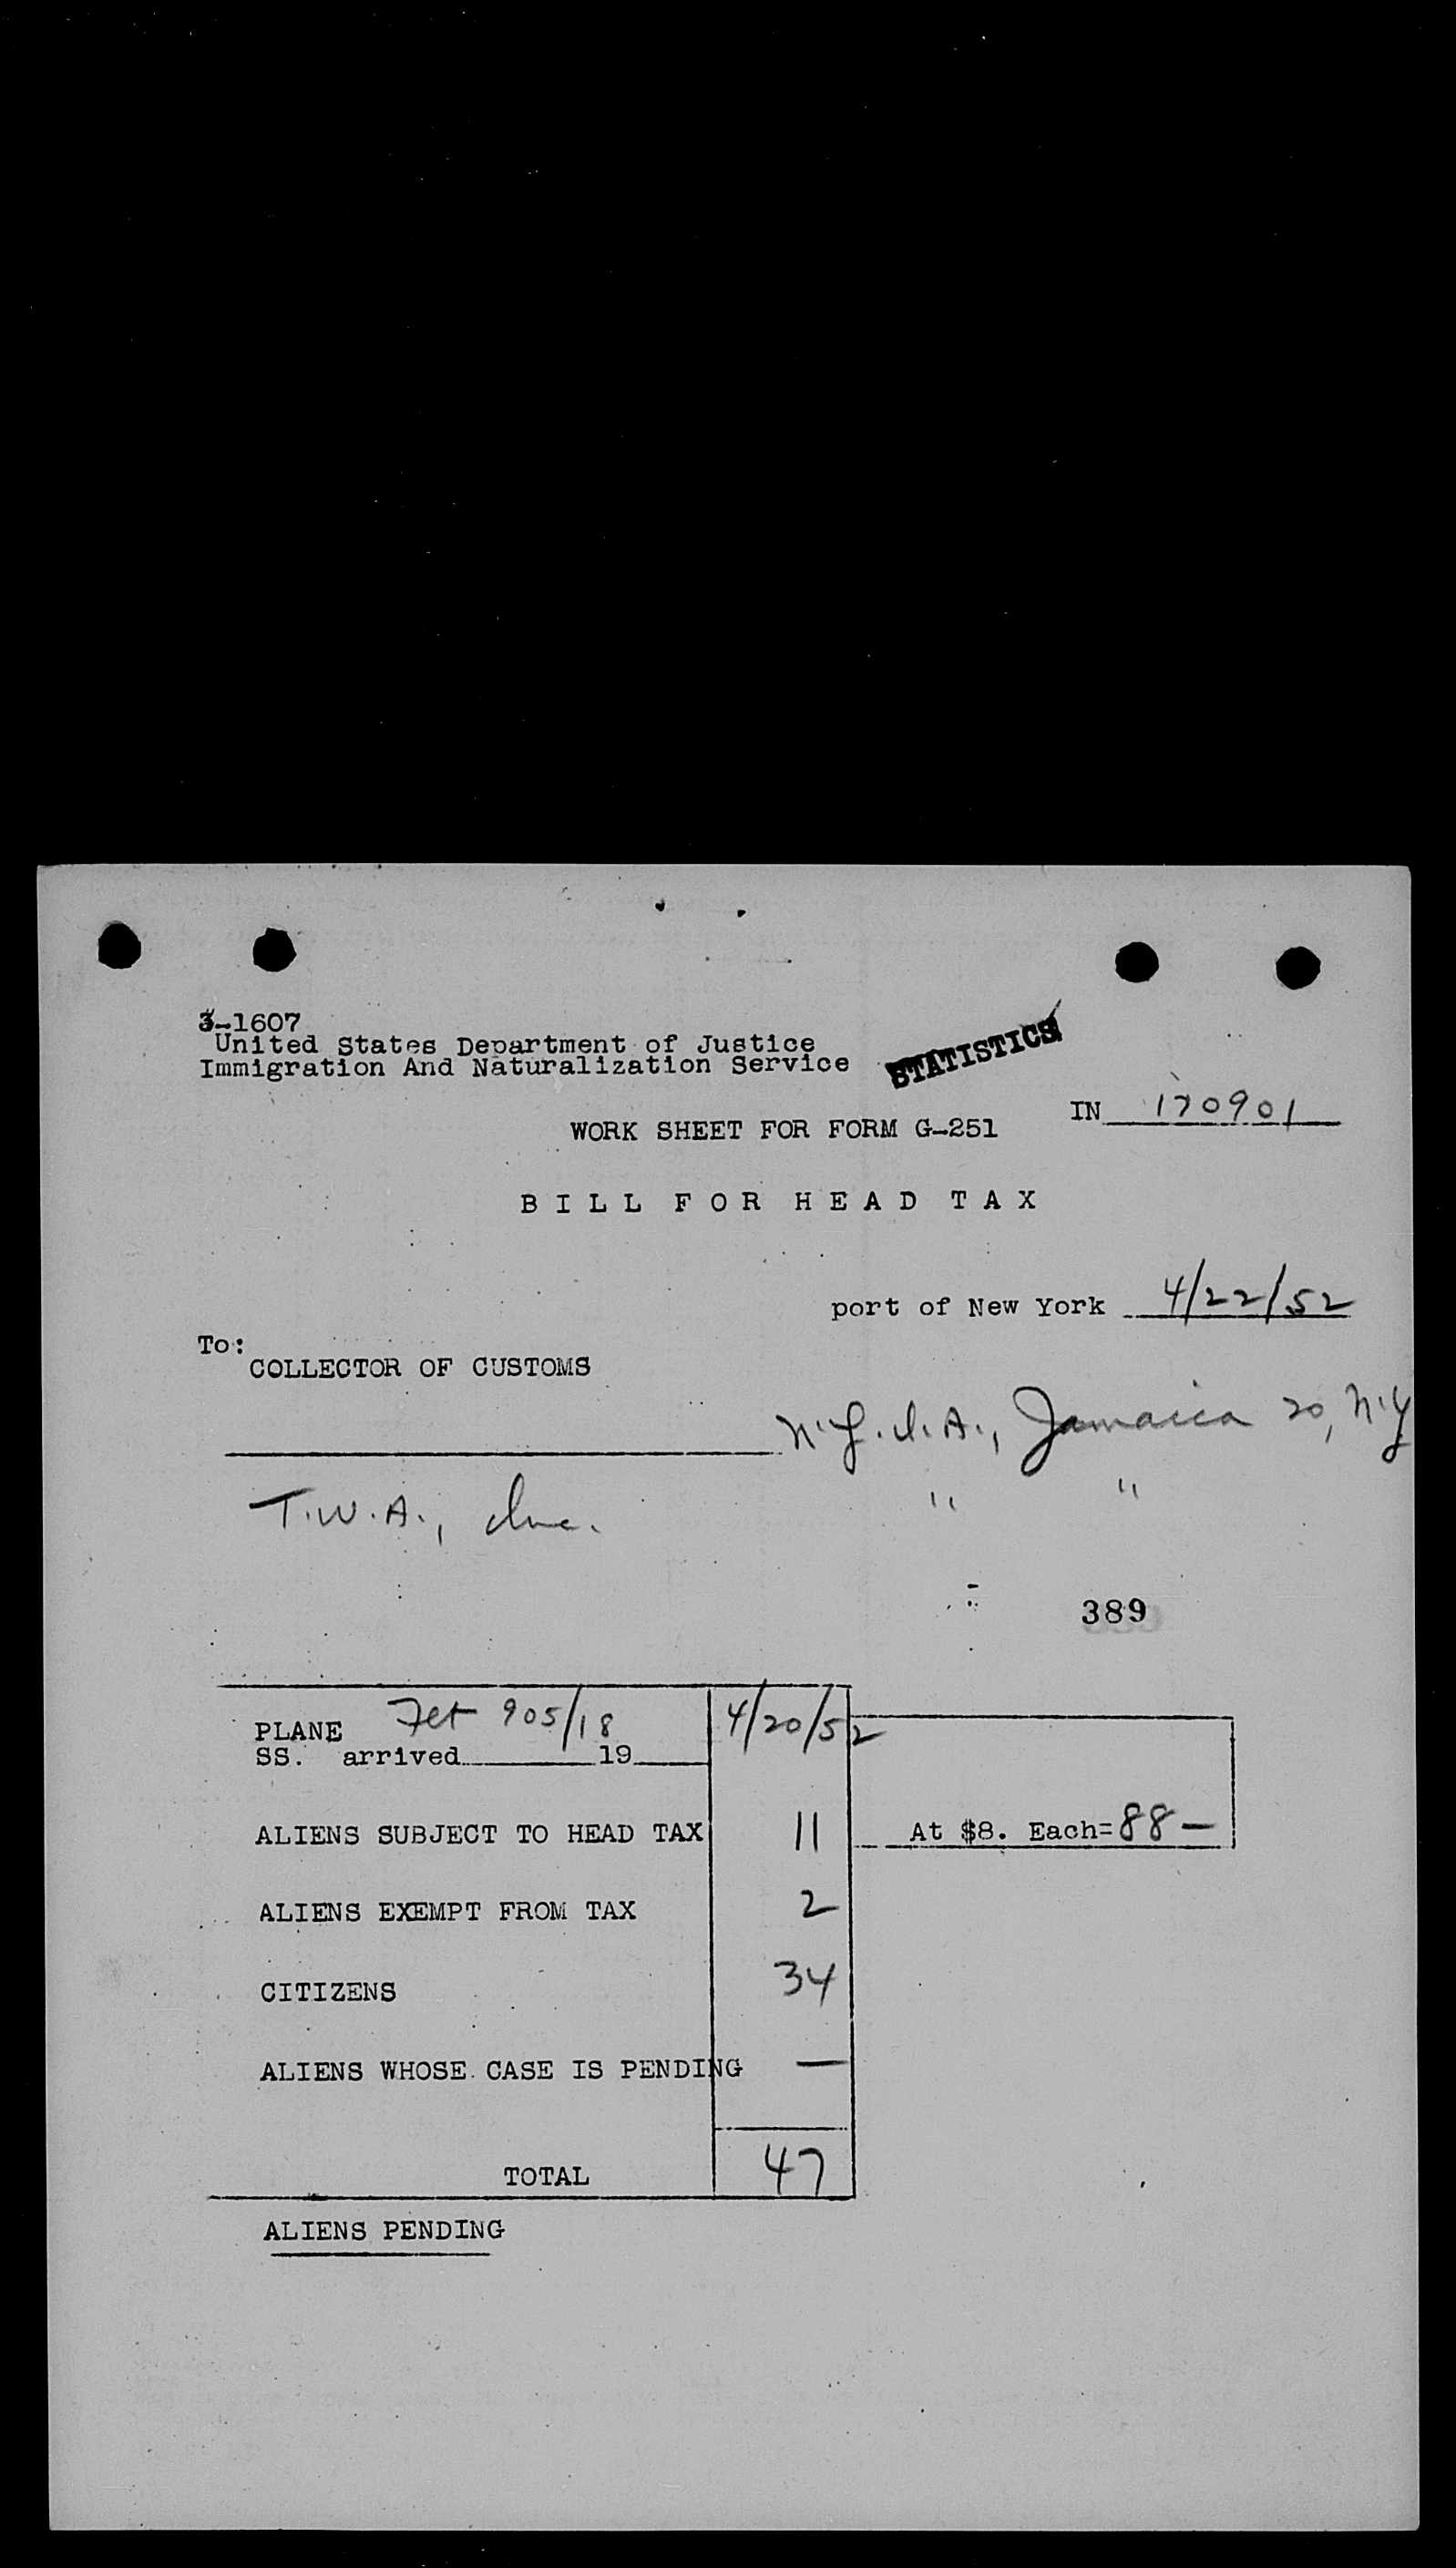 3-1607
United States Department of Justice
Immigration And Naturalization Service
STATISTICS
IN 170901
WORK SHEET FOR FORM G-251
BILL FOR HEAD TAX
port of New York 4/22/52
To:
COLLECTOR OF CUSTOMS
N.Y.I.A., Jamaica 20, N.Y
T.W.A., Inc. " "
389
PLANE Flt 905/18 4/20/52
SS. arrived 19
ALIENS SUBJECT TO HEAD TAX 11 At $8. Each=88—
ALIENS EXEMPT FROM TAX 2
CITIZENS 34
ALIENS WHOSE CASE IS PENDING —
TOTAL 47
ALIENS PENDING